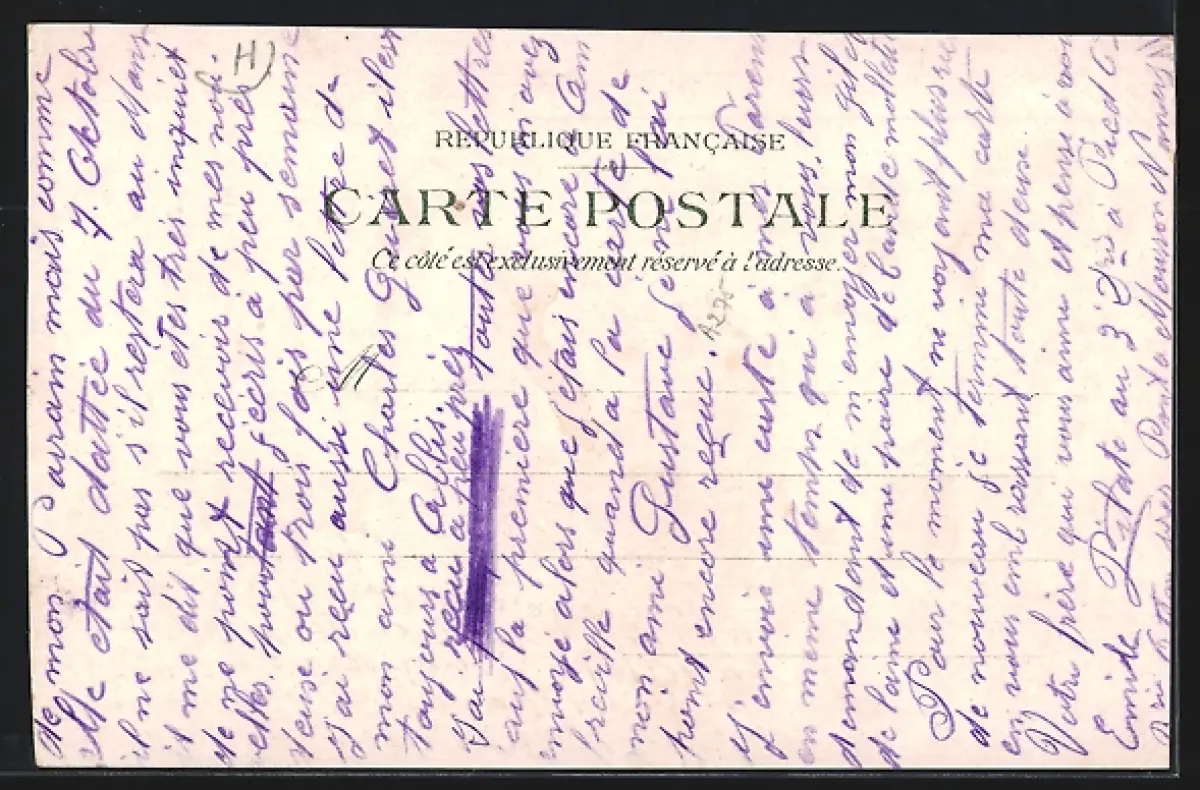 RÉPUBLIQUE FRANÇAISE
CARTE POSTALE
Ce côté est exclusivement réservé à l'adresse.
de mon Parrain mais comme
elle etait dattée du 7 Octobre
il ne sait pas s'il restera au Mans
il me dit que vous êtes très inquiet
de ne point recevoir de mes nou-
velles. pourtant j'écris à peu près
deux ou trois fois par semaine
j'ai reçu aussi une lettre de
mon ami Charles et il est
toujours à Ablis
J'ai reçu à peu près toutes vos lettres
sauf la première que vous m'avez
envoyé alors que j'étais encore
quand à la carte de
mon ami Gustave je ne l'ai
point encore reçue.
J'envoie une carte à mes Parents
en même temps qu'à vous, leurs
demandant de m'envoyer mon gilet
de laine et une paire de bande molletière
Pour le moment ne voyant plus rien
de nouveau je termine ma carte
en vous embrassant toute deuse.
Votre frère qui vous aime et pense à vous
Emile Pitate au 3e à Pied